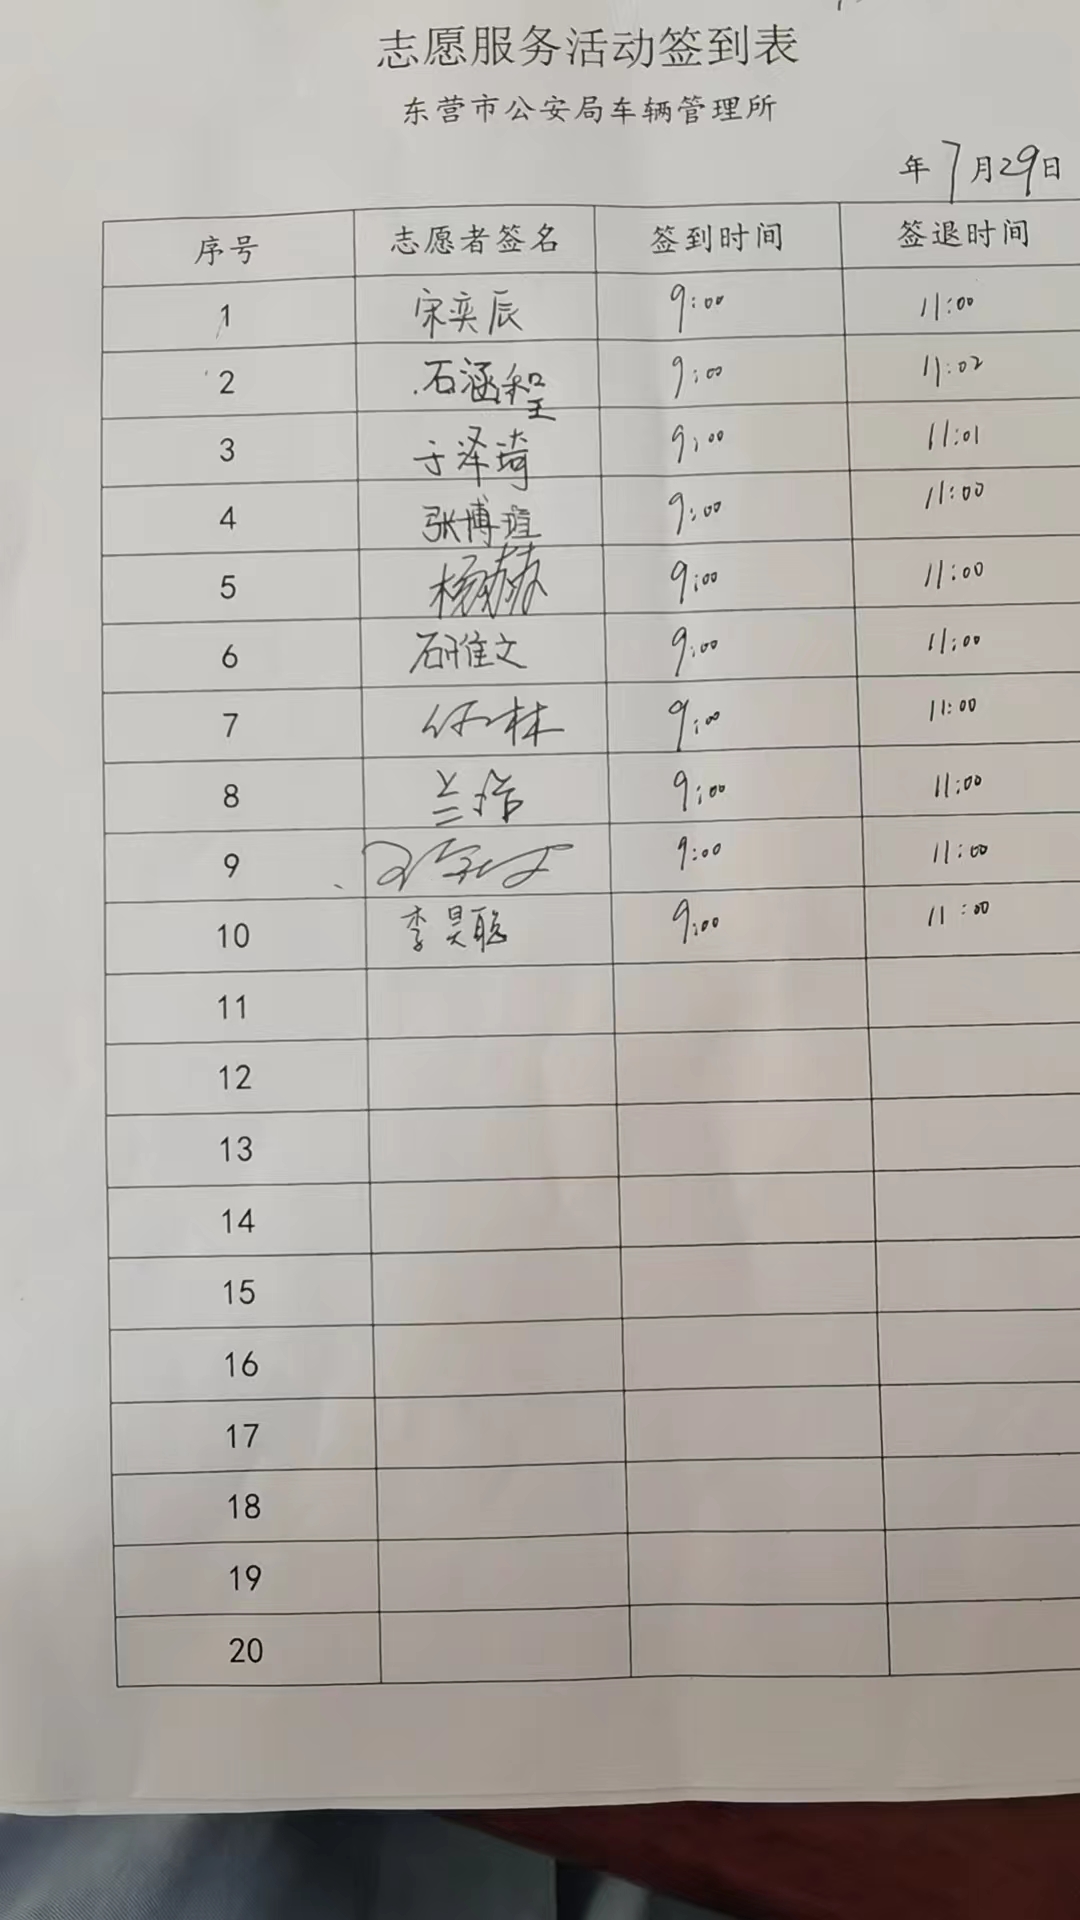 志愿服务活动签到表
东营市公安局车辆管理所
年7月29日
序号 志愿者签名 签到时间 签退时间
1 宋奕辰 9:00 11:00
2 石涵程 9:00 11:02
3 于泽琦 9:00 11:01
4 张博瑄 9:00 11:00
5 杨 9:00 11:00
6 石雅文 9:00 11:00
7 林 9:00 11:00
8 9:00 11:00
9 9:00 11:00
10 李昊聪 9:00 11:00
11
12
13
14
15
16
17
18
19
20